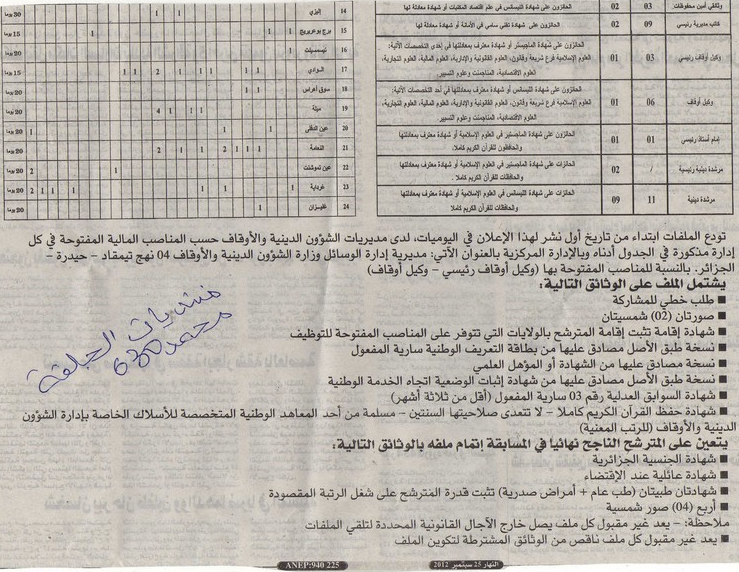 وثائقي أمين محفوظات 03 02 الحائزون على شهادة الليسانس في علم اقتصاد المكتبات أو شهادة معادلة لها
كاتب مديرية رئيسي 09 02 الحائزون على شهادة تقني سامي في الأمانة أو شهادة معادلة لها
وكيل أوقاف رئيسي 03 01 الحائزون على شهادة الماجستير أو شهادة معترف بمعادلتها في إحدى التخصصات الآتية:
العلوم الإسلامية فرع شريعة وقانون، العلوم القانونية والإدارية، العلوم المالية، العلوم التجارية،
العلوم الاقتصادية، المناجمنت وعلوم التسيير
وكيل أوقاف 06 01 الحائزون على شهادة الليسانس أو شهادة معترف بمعادلتها في أحد التخصصات الآتية:
العلوم الإسلامية فرع شريعة وقانون، العلوم القانونية والإدارية، العلوم المالية، العلوم التجارية،
العلوم الاقتصادية، المناجمنت وعلوم التسيير
إمام أستاذ رئيسي 01 01 الحائزون على شهادة الماجستير في العلوم الإسلامية أو شهادة معترف بمعادلتها
والحافظون للقرآن الكريم كاملا.
مرشدة دينية رئيسية / 02 الحائزات على شهادة الماجستير في العلوم الإسلامية أو شهادة معترف بمعادلتها
والحافظات للقرآن الكريم كاملا .
مرشدة دينية 11 09 الحائزات على شهادة الليسانس في العلوم الإسلامية أو شهادة معترف بمعادلتها
والحافظات للقرآن الكريم كاملا
14 إليزي 1 30 يوما
15 برج بوعريريج 1 1 1 15 يوما
16 تيسمسيلت 1 20 يوما
17 الوادي 1 1 1 1 2 1 1 15 يوما
18 سوق أهراس 1 1 20 يوما
19 ميلة 1 1 1 4 20 يوما
20 عين الدفلى 1 1 1 20 يوما
21 النعامة 1 1 1 2 1 1 2 20 يوما
22 عين تموشنت 1 2 20 يوما
23 غرداية 1 1 1 1 1 2 20 يوما
24 غليزان 1 20 يوما
تودع الملفات ابتداء من تاريخ أول نشر لهذا الإعلان في اليوميات، لدى مديريات الشؤون الدينية والأوقاف حسب المناصب المالية المفتوحة في كل
إدارة مذكورة في الجدول أدناه وبالإدارة المركزية بالعنوان الآتي: مديرية إدارة الوسائل وزارة الشؤون الدينية والأوقاف 04 نهج تيمقاد – حيدرة –
الجزائر. بالنسبة للمناصب المفتوحة بها (وكيل أوقاف رئيسي – وكيل أوقاف)
يشتمل الملف على الوثائق التالية:
■ طلب خطي للمشاركة
■ صورتان (02) شمسيتان
■ شهادة إقامة تثبت إقامة المترشح بالولايات التي تتوفر على المناصب المفتوحة للتوظيف
■ نسخة طبق الأصل مصادق عليها من بطاقة التعريف الوطنية سارية المفعول
■ نسخة مصادق عليها من الشهادة أو المؤهل العلمي
■ نسخة طبق الأصل مصادق عليها من شهادة إثبات الوضعية اتجاه الخدمة الوطنية
■ شهادة السوابق العدلية رقم 03 سارية المفعول (أقل من ثلاثة أشهر)
■ شهادة حفظ القرآن الكريم كاملا – لا تتعدى صلاحيتها السنتين – مسلمة من أحد المعاهد الوطنية المتخصصة للأسلاك الخاصة بإدارة الشؤون
الدينية والأوقاف (للرتب المعنية)
يتعين على المترشح الناجح نهائيا في المسابقة إتمام ملفه بالوثائق التالية:
■ شهادة الجنسية الجزائرية
■ شهادة عائلية عند الإقتضاء
■ شهادتان طبيتان (طب عام + أمراض صدرية) تثبت قدرة المترشح على شغل الرتبة المقصودة
■ أربع (04) صور شمسية
ملاحظة: – يعد غير مقبول كل ملف يصل خارج الآجال القانونية المحددة لتلقي الملفات
■ يعد غير مقبول كل ملف ناقص من الوثائق المشترطة لتكوين الملف
منتديات الجلفة
محمد 630
النهار 25 سبتمبر 2012
ANEP:940 225